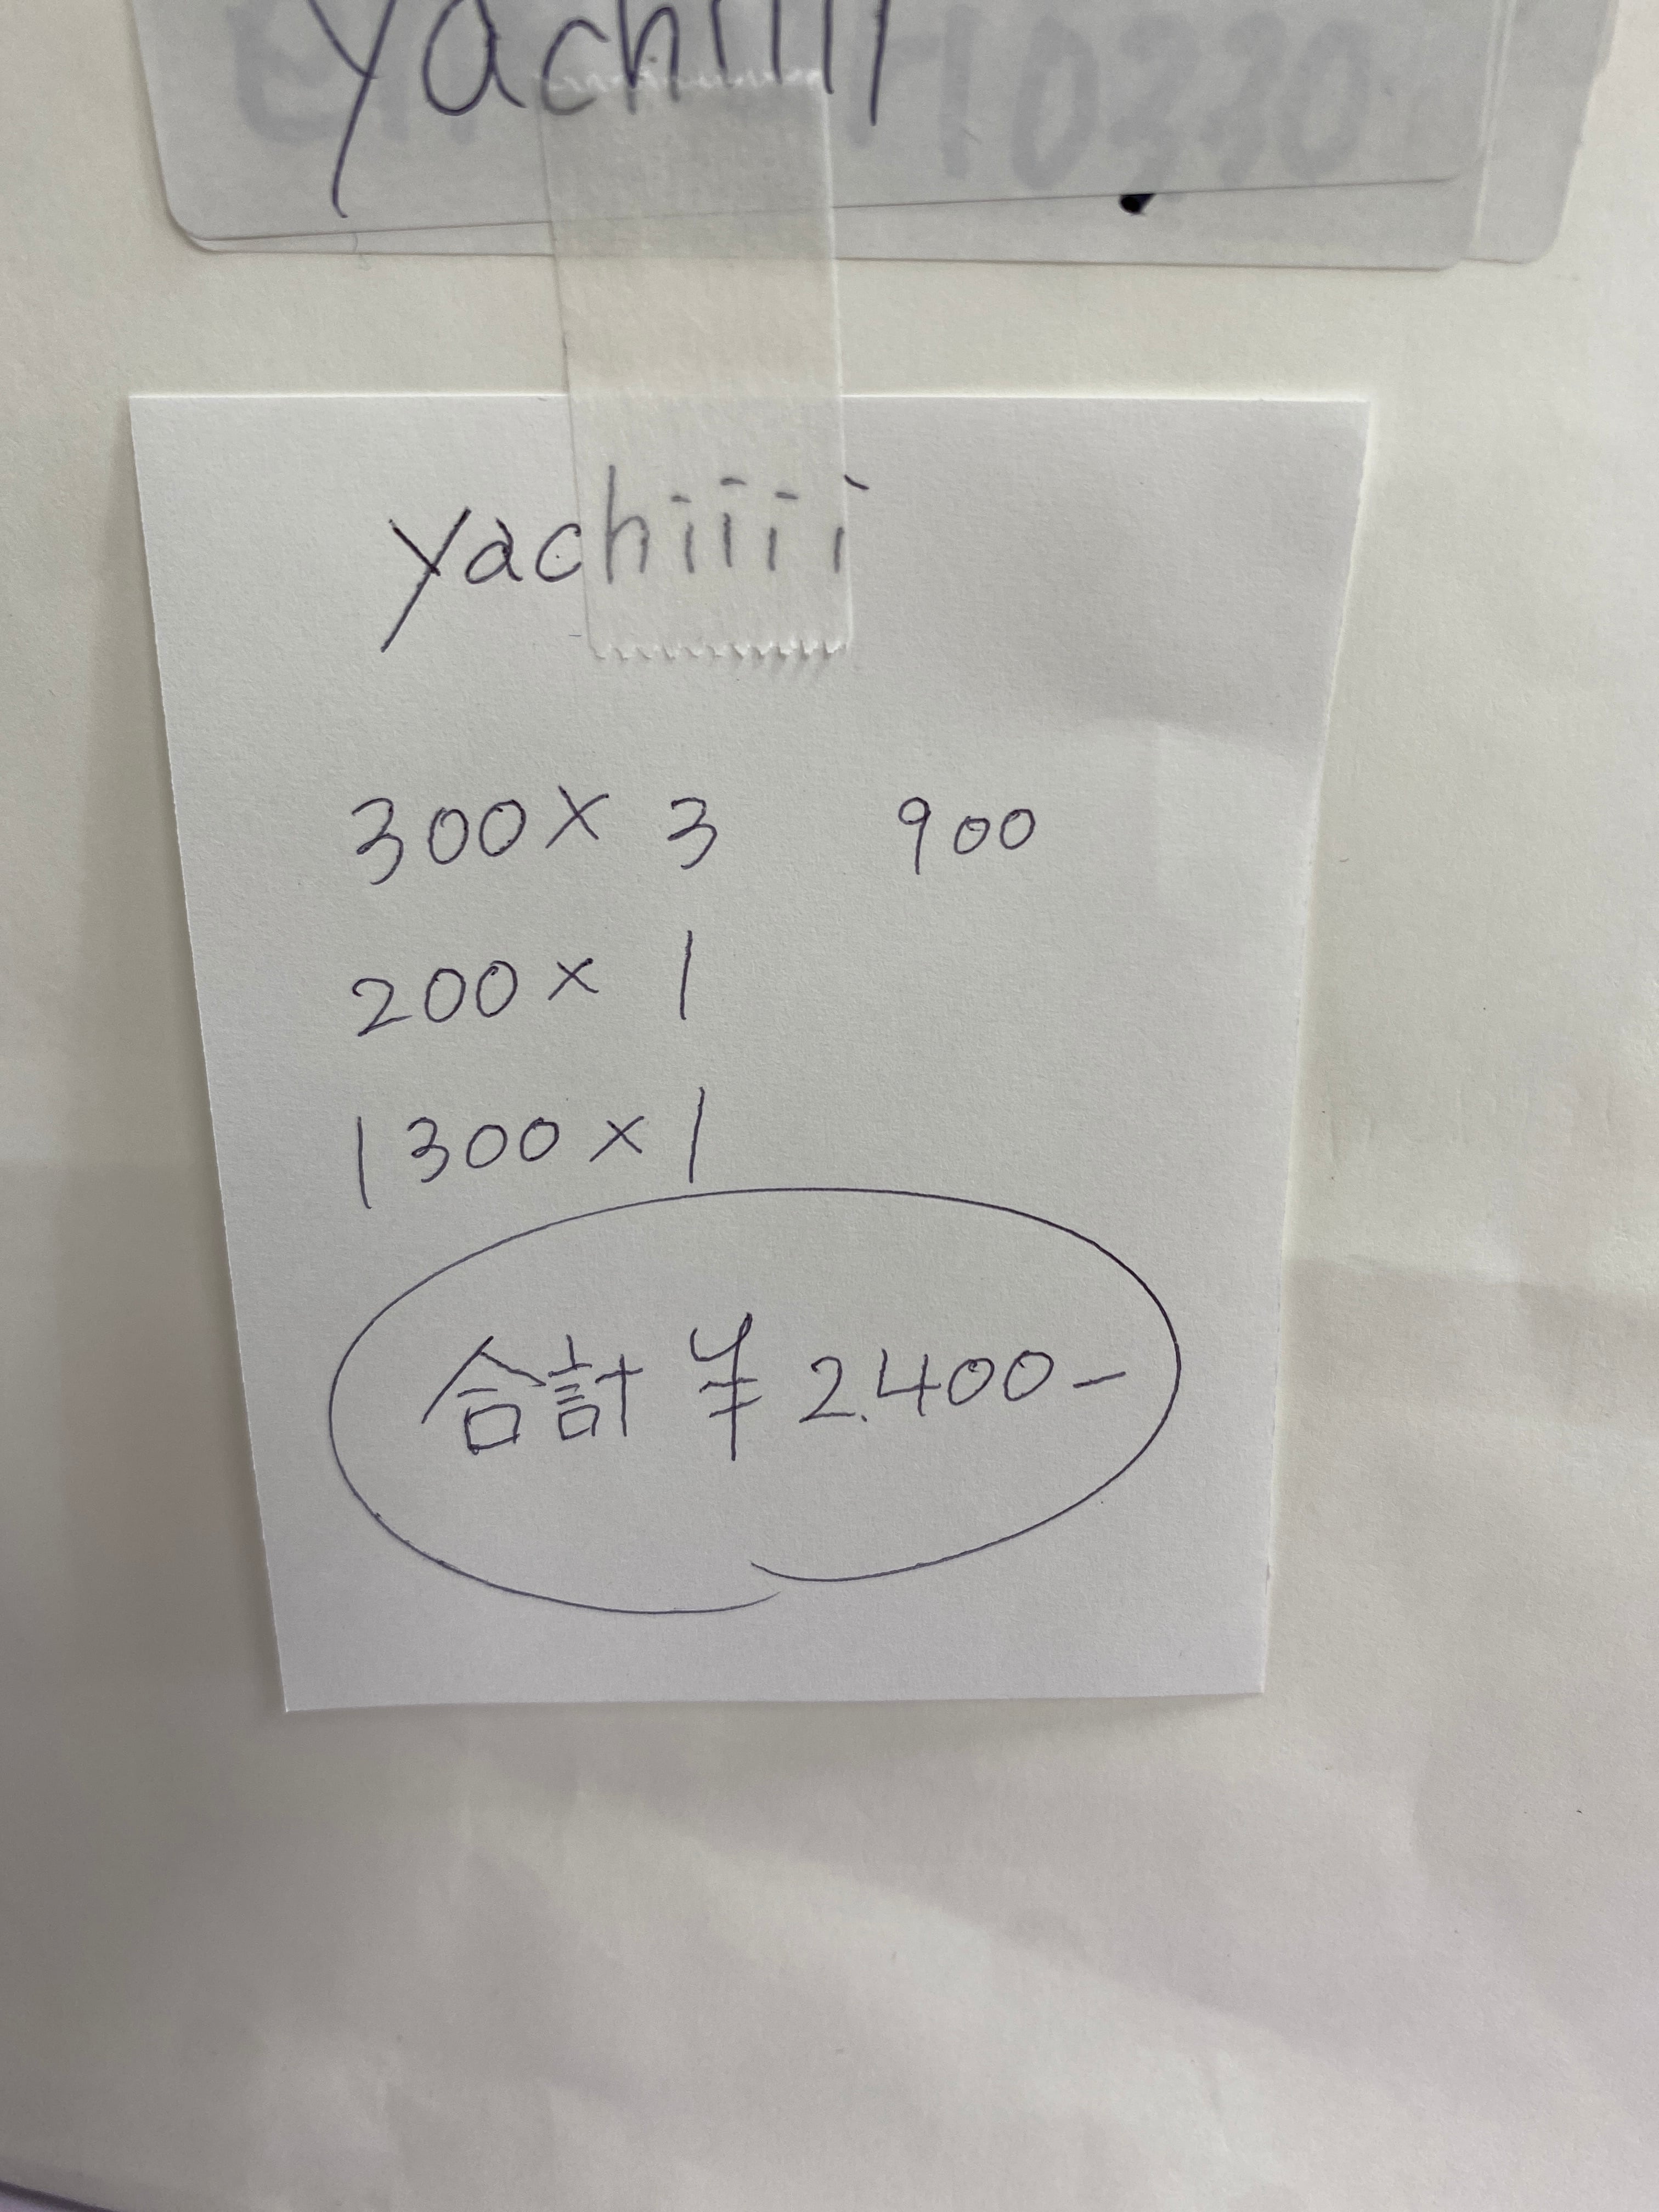 yachiiii
yachiiii
300× 3 900
200× 1
1300×1
合計 ¥2.400-